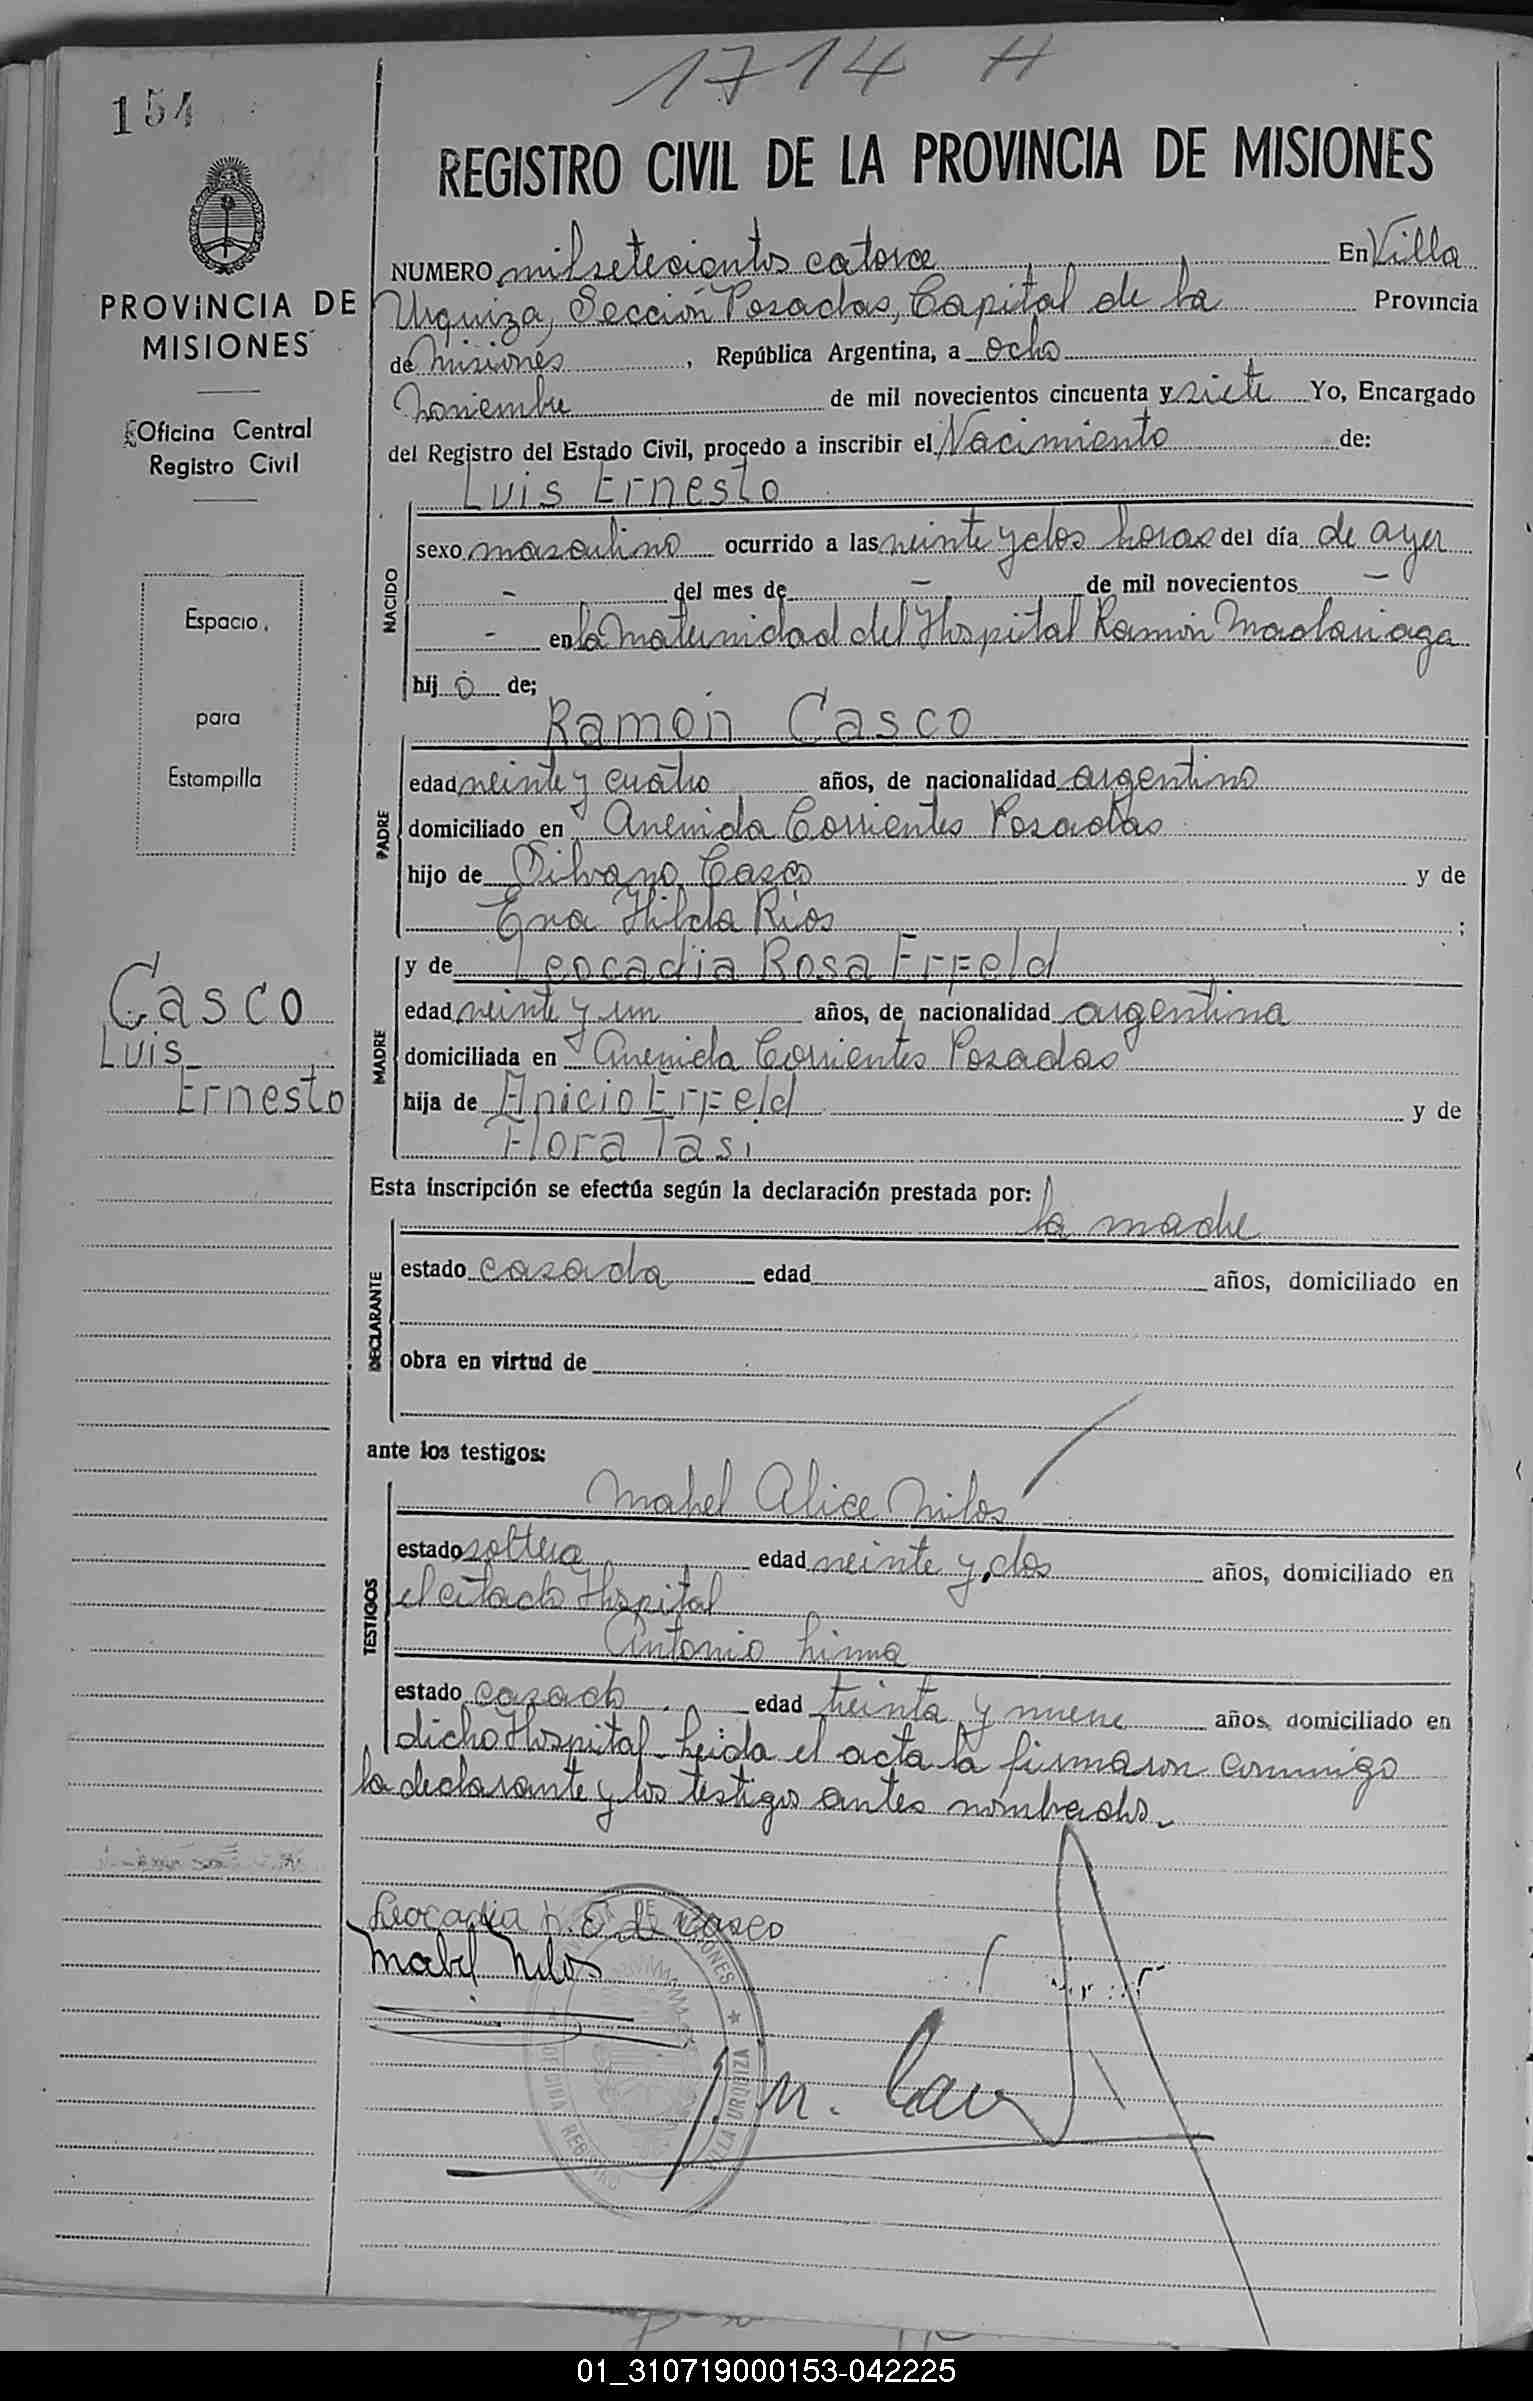 1714 H
154
REGISTRO CIVIL DE LA PROVINCIA DE MISIONES
PROVINCIA DE
MISIONES
Oficina Central
Registro Civil
Espacio
para
Estampilla
Casco
Luis
Ernesto
NUMERO milsetecientos catorce En Villa
Urquiza, Sección Posadas, Capital de la Provincia
de Misiones, República Argentina, a ocho
Noviembre de mil novecientos cincuenta y siete Yo, Encargado
del Registro del Estado Civil, procedo a inscribir el Nacimiento de:
Luis Ernesto
NACIDO
sexo masculino ocurrido a las veinte y dos horas del día de ayer
- del mes de - de mil novecientos -
- en la Maternidad del Hospital Ramón Madariaga
hij o de;
Ramón Casco
PADRE
edad veinte y cuatro años, de nacionalidad argentino
domiciliado en Avenida Corrientes Posadas
hijo de Silvano Casco y de
Eva Hilda Ríos ;
y de Leocadia Rosa Erfeld
MADRE
edad veinte y un años, de nacionalidad argentina
domiciliada en Avenida Corrientes Posadas
hija de Anicio Erfeld y de
Flora Tasi
Esta inscripción se efectúa según la declaración prestada por:
la madre
DECLARANTE
estado casada edad años, domiciliado en
obra en virtud de
ante los testigos:
Mabel Alice Milos
TESTIGOS
estado soltera edad veinte y dos años, domiciliado en
el citado Hospital
Antonio
estado casado edad treinta y nueve años, domiciliado en
dicho Hospital. Leida el acta la firmaron conmigo
la declarante y los testigos antes nombrados.
Leocadia E de Casco
Mabel Milos
OFICINA REGISTRO VILLA URQUIZA
01_310719000153-042225